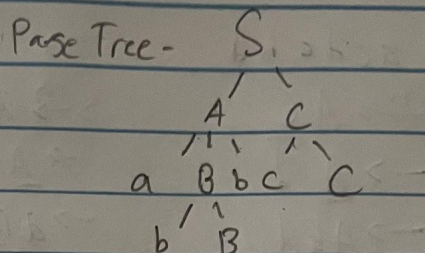 Parse Tree- S
A C
a B b c C
b B